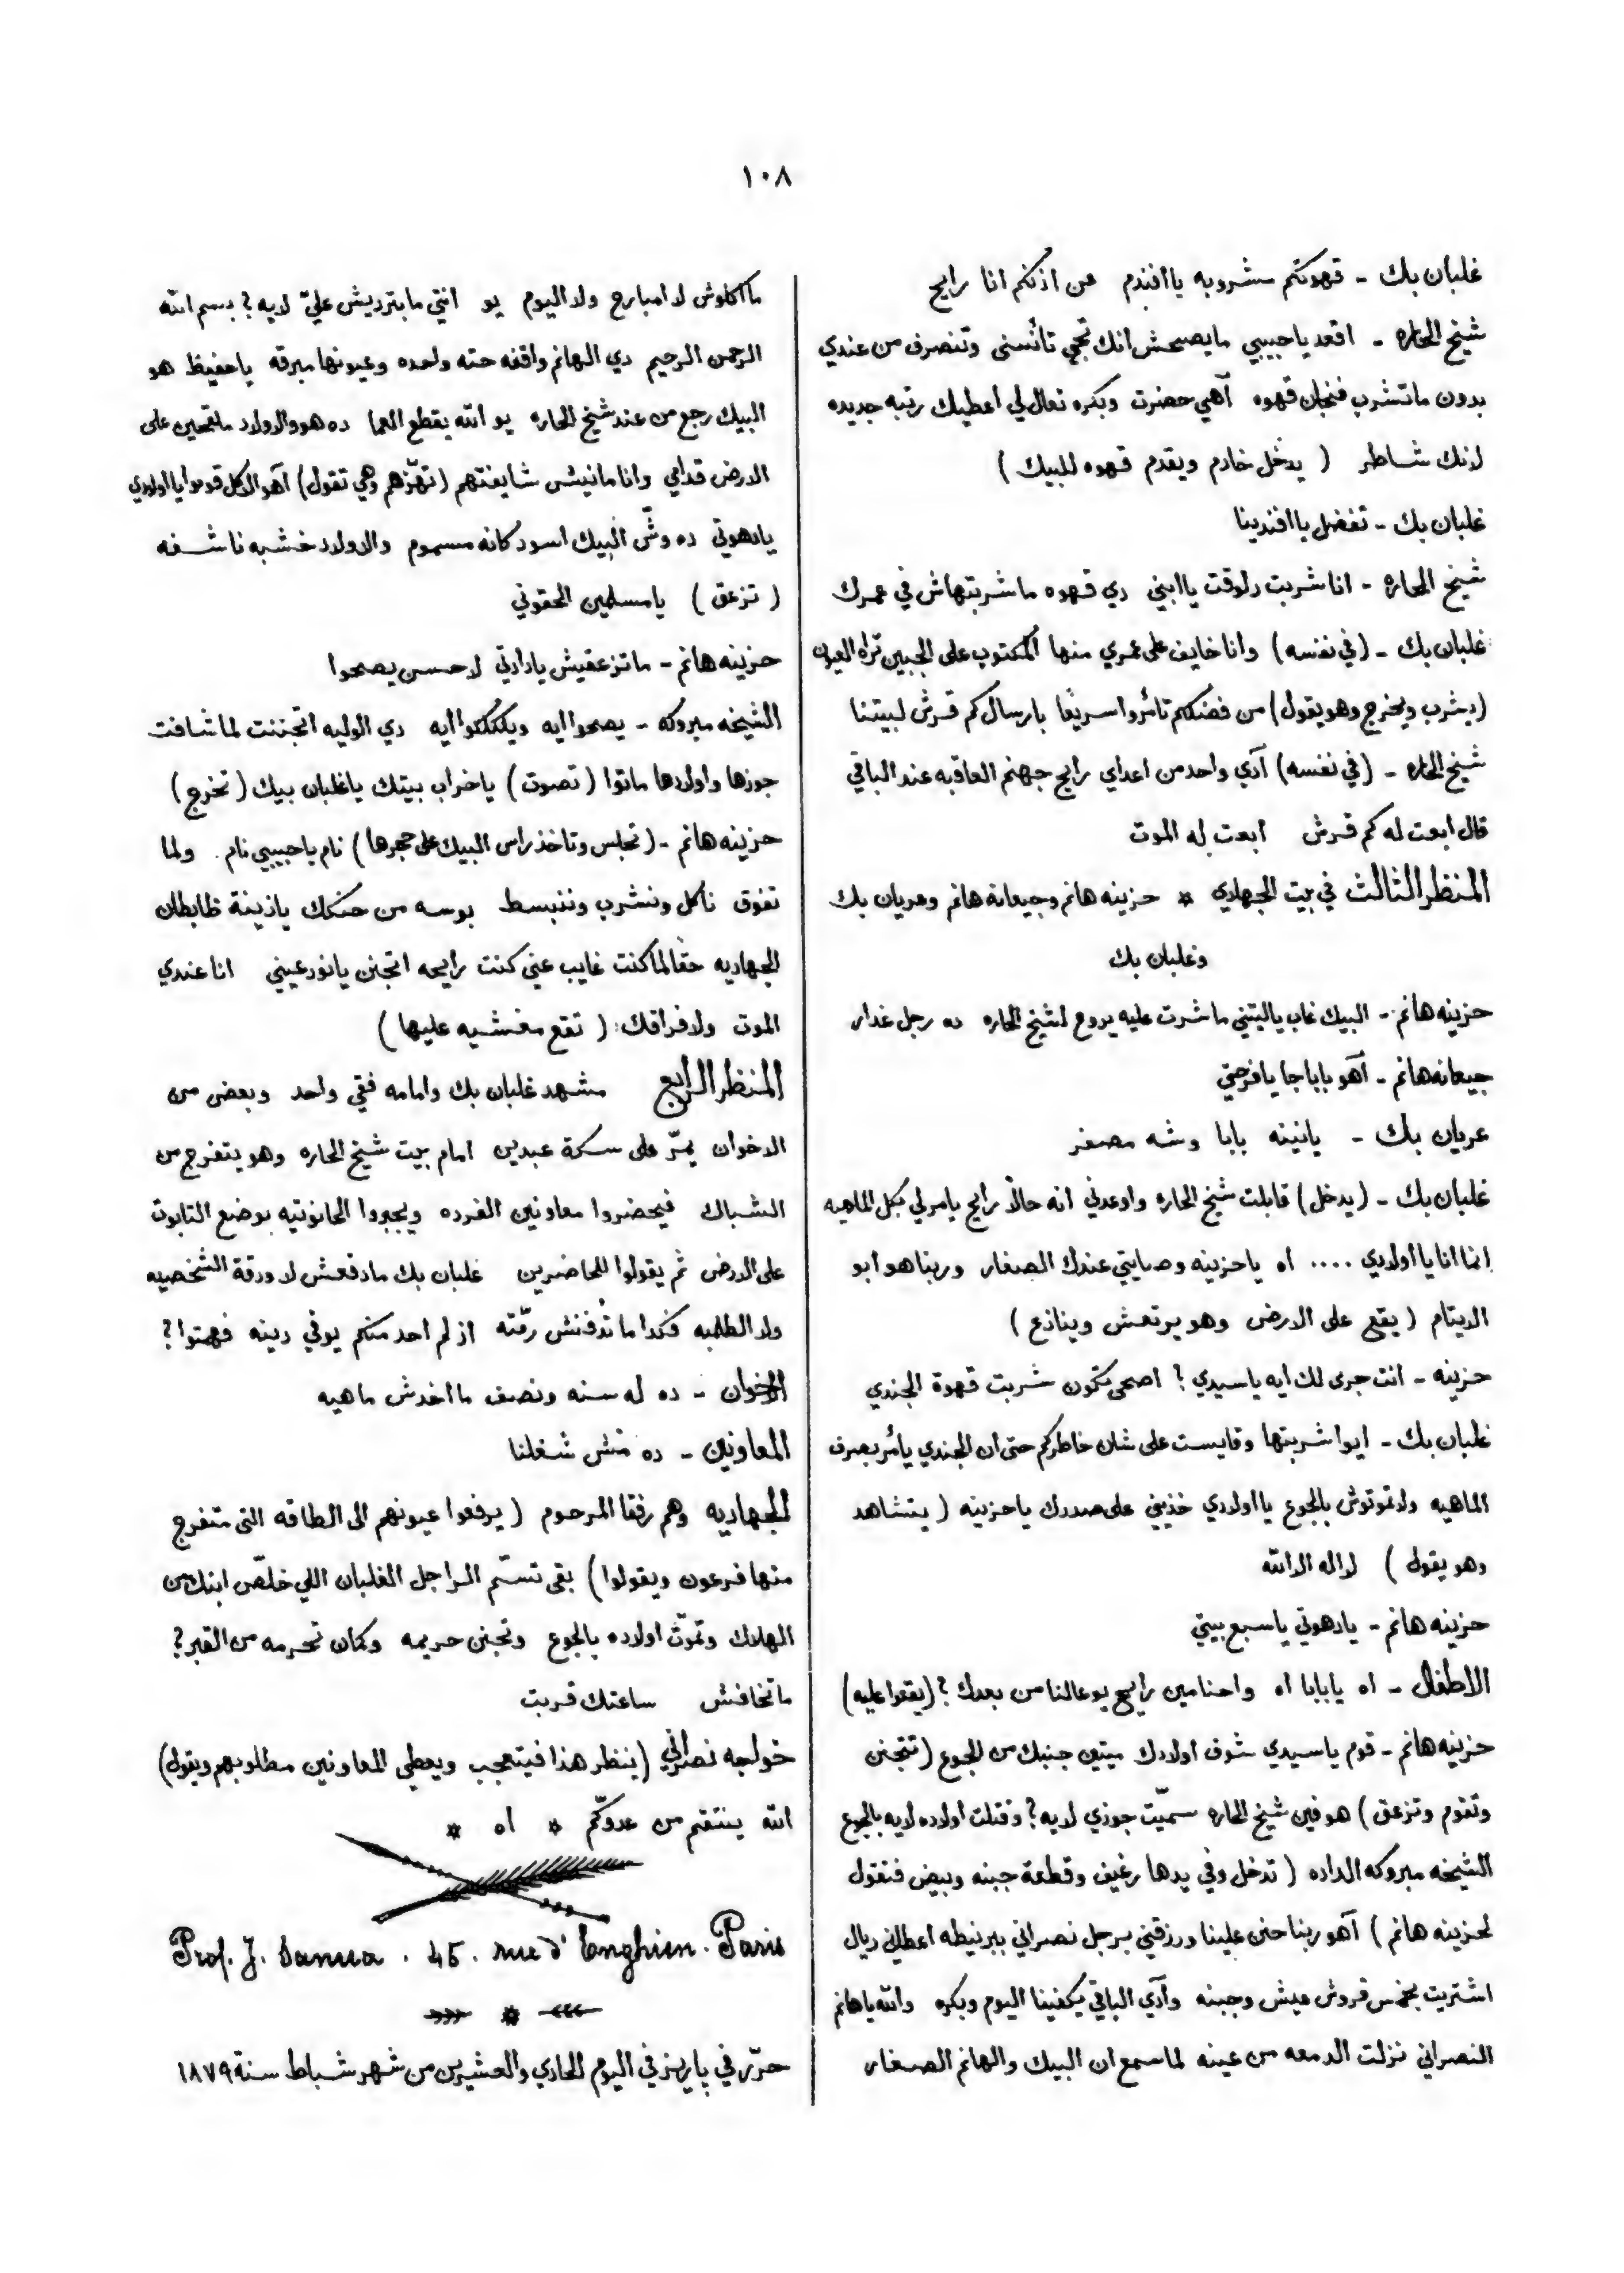 ١٠٨
غلبان بك - قهوتكم مشروبه يا افندم عن اذنكم انا رايح
شيخ الحاره - اقعد يا حبيبي ما يصحش انك تجي تأنسنى وتنصرف من عندي
بدون ما تشرب فنجان قهوه آهي حضرت وبكره تعال لي اعطيك رتبه جديده
لانك شاطر ( يدخل خادم ويقدم قهوه للبيك )
غلبان بك - تفضل يا افندينا
شيخ الحاره - انا شربت دلوقت يا ابني دي قهوه ما شربتهاش في عمرك
غلبان بك - (في نفسه) وانا خايف على عمري منها المكتوب على الجبين تراه العيون
(يشرب ويخرج وهو يقول) من فضلكم تأمروا سريعًا بارسال كم قرش لبيتنا
شيخ الحاره - (في نفسه) آدي واحد من اعداي رايح جهنم العاقبه عند الباقي
قال ابعت له كم قرش ابعت له الموت
المنظر الثالث في بيت الجهادي * حزينه هانم وجيعانه هانم وعريان بك
وغلبان بك
حزينه هانم - البيك غاب ياليتني ما شرت عليه يروح لشيخ الحاره ده رجل غدار
جيعانه هانم - آهو بابا جا يا فرحتي
عريان بك - يا نينه بابا وشه مصفر
غلبان بك - (يدخل) قابلت شيخ الحاره واوعدني انه حالًا رايح يامر لي بكل الماهيه
انما انا يا أولادي .... اه يا حزينه وصايتي عندك الصغار وربنا هو ابو
الايتام ( يقع على الارض وهو يرتعش وينازع )
حزينه - انت جرى لك ايه يا سيدي ؟ اصحى تكون شربت قهوة الجندي
غلبان بك - ايوا شربتها وقايست على شان خاطركم حتى ان الجندي يأمر بصرف
الماهيه ولا تموتوش بالجوع يا اولادي خذيني على صدرك يا حزينه ( يتشاهد
وهو يقول ) لا اله الا الله
حزينه هانم - يا دهوتي يا سبع بيتي
الاطفال - اه يا بابا اه واحنا مين رايح يوعالنا من بعدك ؟ (يقعوا عليه)
حزينه هانم - قوم يا سيدي شوف اولادك ميتين جنبك من الجوع ( تتجنن
وتقوم وتزعق ) هو فين شيخ الحاره سمّيت جوزي لايه ؟ وقتلت اولاده لايه بالجوع
الشيخه مبروكه الداده ( تدخل وفي يدها رغيف وقطعة جبنه وبيض فتقول
لحزينه هانم ) آهو ربنا حنن علينا ورزقني برجل نصراني ببرنيطه اعطاني ريال
اشتريت بخمس قروش عيش وجبنه وآدي الباقي يكفينا اليوم وبكره والله يا هانم
النصراني نزلت الدمعه من عينه لما سمع ان البيك والهانم الصغار
ما اكلوش لا امبارح ولا اليوم يو انتي ما بترديش عليّ لايه ؟ بسم الله
الرحمن الرحيم دي الهانم واقفه حته واحده وعيونها مبرقه يا حفيظ هو
البيك رجع من عند شيخ الحاره يو الله يقطع العما ده هو والاولاد ملقحين على
الارض قدامي وانا مانيش شايفتهم (تهزّهم وهي تقول) آهو الاكل قوموا يا اولادي
يا دهوتي ده وشّ البيك اسود كانه مسموم والاولاد خشبه ناشفه
( تزعق ) يا مسلمين الحقوني
حزينه هانم - ما تزعقيش يا دادتي لاحسن يصحوا
الشيخه مبروكه - يصحوا ايه ويكككوا ايه دي الوليه اتجننت لما شافت
جوزها واولادها ماتوا ( تصوت ) يا خراب بيتك يا غلبان بيك ( تخرج )
حزينه هانم - ( تجلس وتاخذ راس البيك على حجرها ) نام يا حبيبي نام . ولما
تفوق ناكل ونشرب وننبسط بوسه من حنكك يا زينة ظابطان
الجهاديه حقًا لما كنت غايب عني كنت رايحه اتجنن يا نور عيني انا عندي
الموت ولا فراقك : ( تقع مغشيه عليها )
المنظر الرابع مشهد غلبان بك وامامه فقي واحد وبعض من
الاخوان يمرّ على سكة عبدين امام بيت شيخ الحاره وهو يتفرج من
الشباك فيحضروا معاونين الفرده ويجبروا الحانوتيه بوضع التابوت
على الارض ثم يقولوا للحاضرين غلبان بك ما دفعش لا ورقة الشخصيه
ولا الطلبه فكدا ما تُدفنش رمّته از لم احد منكم يوفي دينه فهمتوا ؟
الاخوان - ده له سنه ونصف ما اخدش ماهيه
المعاونين - ده مش شغلنا
الجهاديه وهم رفقا المرحوم ( يرفعوا عيونهم الى الطاقه التى متفرج
منها فرعون ويقولوا ) بقى تسمّ الراجل الغلبان اللي خلّص ابنك من
الهلاك وتموّت اولاده بالجوع وتجنن حريمه وكمان تحرمه من القبر ؟
ما تخافش ساعتك قربت
خواجه نصراني (ينظر هذا فيتعجب ويعطي المعاونين مطلوبهم ويقول)
الله ينتقم من عدوّكم * اه *
Prof. J. Sanua . 46 . rue d' Enghien . Paris
حرّر في باريز في اليوم الحادي والعشرين من شهر شباط سنة ١٨٧٩